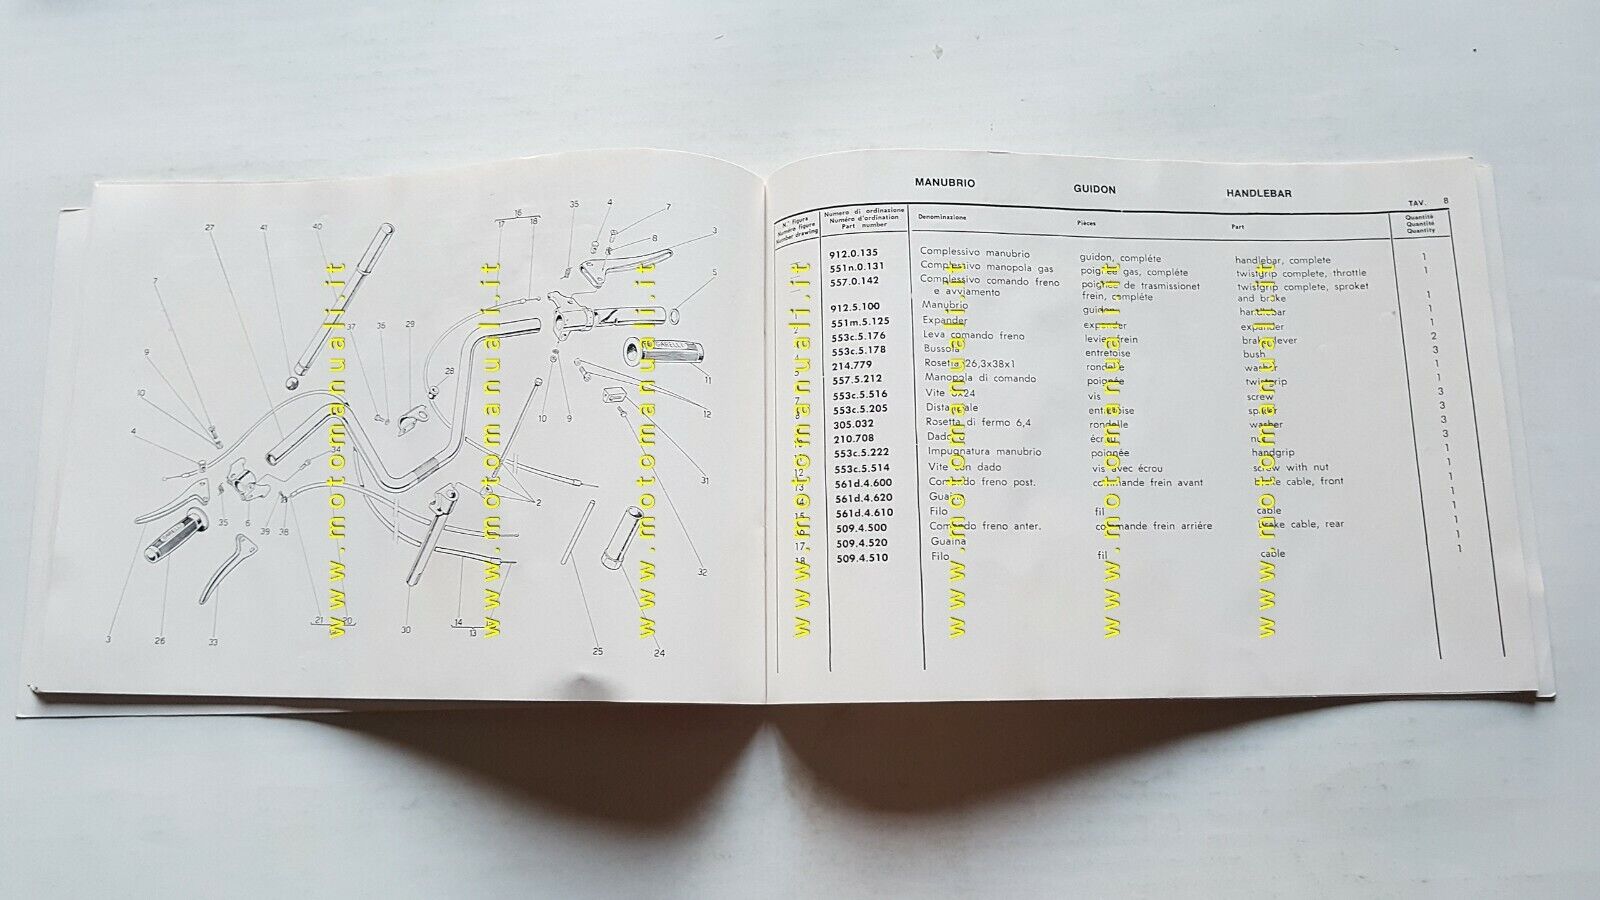 27
41
40
16
17
18
35
4
7
8
3
5
7
37
35
29
9
10
28
11
4
34
10
9
12
35
6
39
38
2
31
32
3
26
33
21
20
30
14
13
25
24
GARELLI
MANUBRIO GUIDON HANDLEBAR
TAV. 8
N.° figura Numero di ordinazione Denominazione Pièces Part Quantità
Numéro figure Numéro d'ordination Quantité
Number drawing Part number Quantity
912.0.135 Complessivo manubrio guidon, complète handlebar, complete 1
551n.0.131 Complessivo manopola gas poignée gas, complète twistgrip complete, throttle 1
557.0.142 Complessivo comando freno poignée de trasmissionet twistgrip complete, sproket
e avviamento frein, complète and brake 1
912.5.100 Manubrio guidon handlebar 1
2 551m.5.125 Expander expander expander 1
553c.5.176 Leva comando freno levier frein brake lever 2
553c.5.178 Bussola entretoise bush 3
214.779 Rosetta 26,3x38x1 rondelle washer 1
557.5.212 Manopola di comando poignée twistgrip 1
7 553c.5.516 Vite 6x24 vis screw 3
8 553c.5.205 Distanziale entretoise spacer 3
305.032 Rosetta di fermo 6,4 rondelle washer 3
210.708 Dado écrou nut 3
553c.5.222 Impugnatura manubrio poignée handgrip 1
12 553c.5.514 Vite con dado vis avec écrou screw with nut 1
13 561d.4.600 Comando freno post. commande frein avant brake cable, front 1
14 561d.4.620 Guaina 1
15 561d.4.610 Filo fil cable 1
16 509.4.500 Comando freno anter. commande frein arrière brake cable, rear 1
17 509.4.520 Guaina 1
18 509.4.510 Filo fil cable 1
www.motomanuali.it
www.motomanuali.it
www.motomanuali.it
www.motomanuali.it
www.motomanuali.it
www.motomanuali.it
www.motomanuali.it